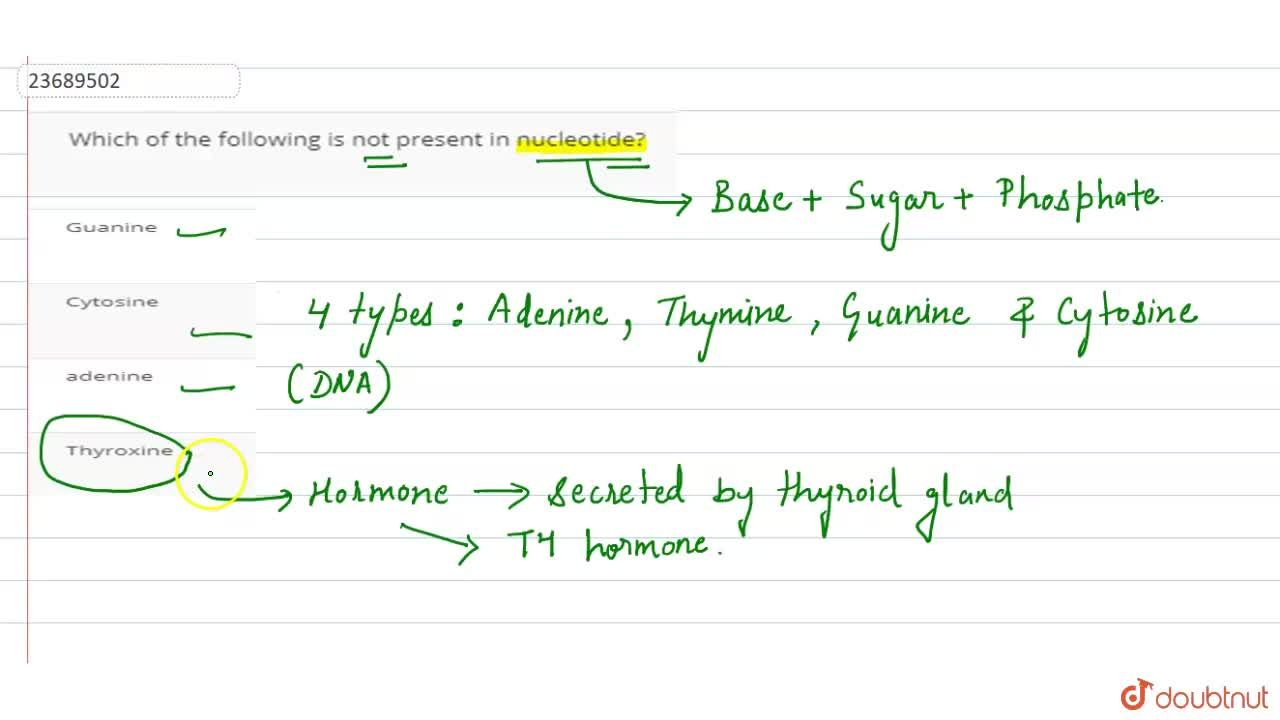 23689502
Which of the following is not present in nucleotide?
Base + Sugar + Phosphate.
Guanine
Cytosine
4 types : Adenine, Thymine, Guanine & Cytosine
adenine
(DNA)
Thyroxine
Hormone → secreted by thyroid gland
→ T4 hormone.
doubtnut